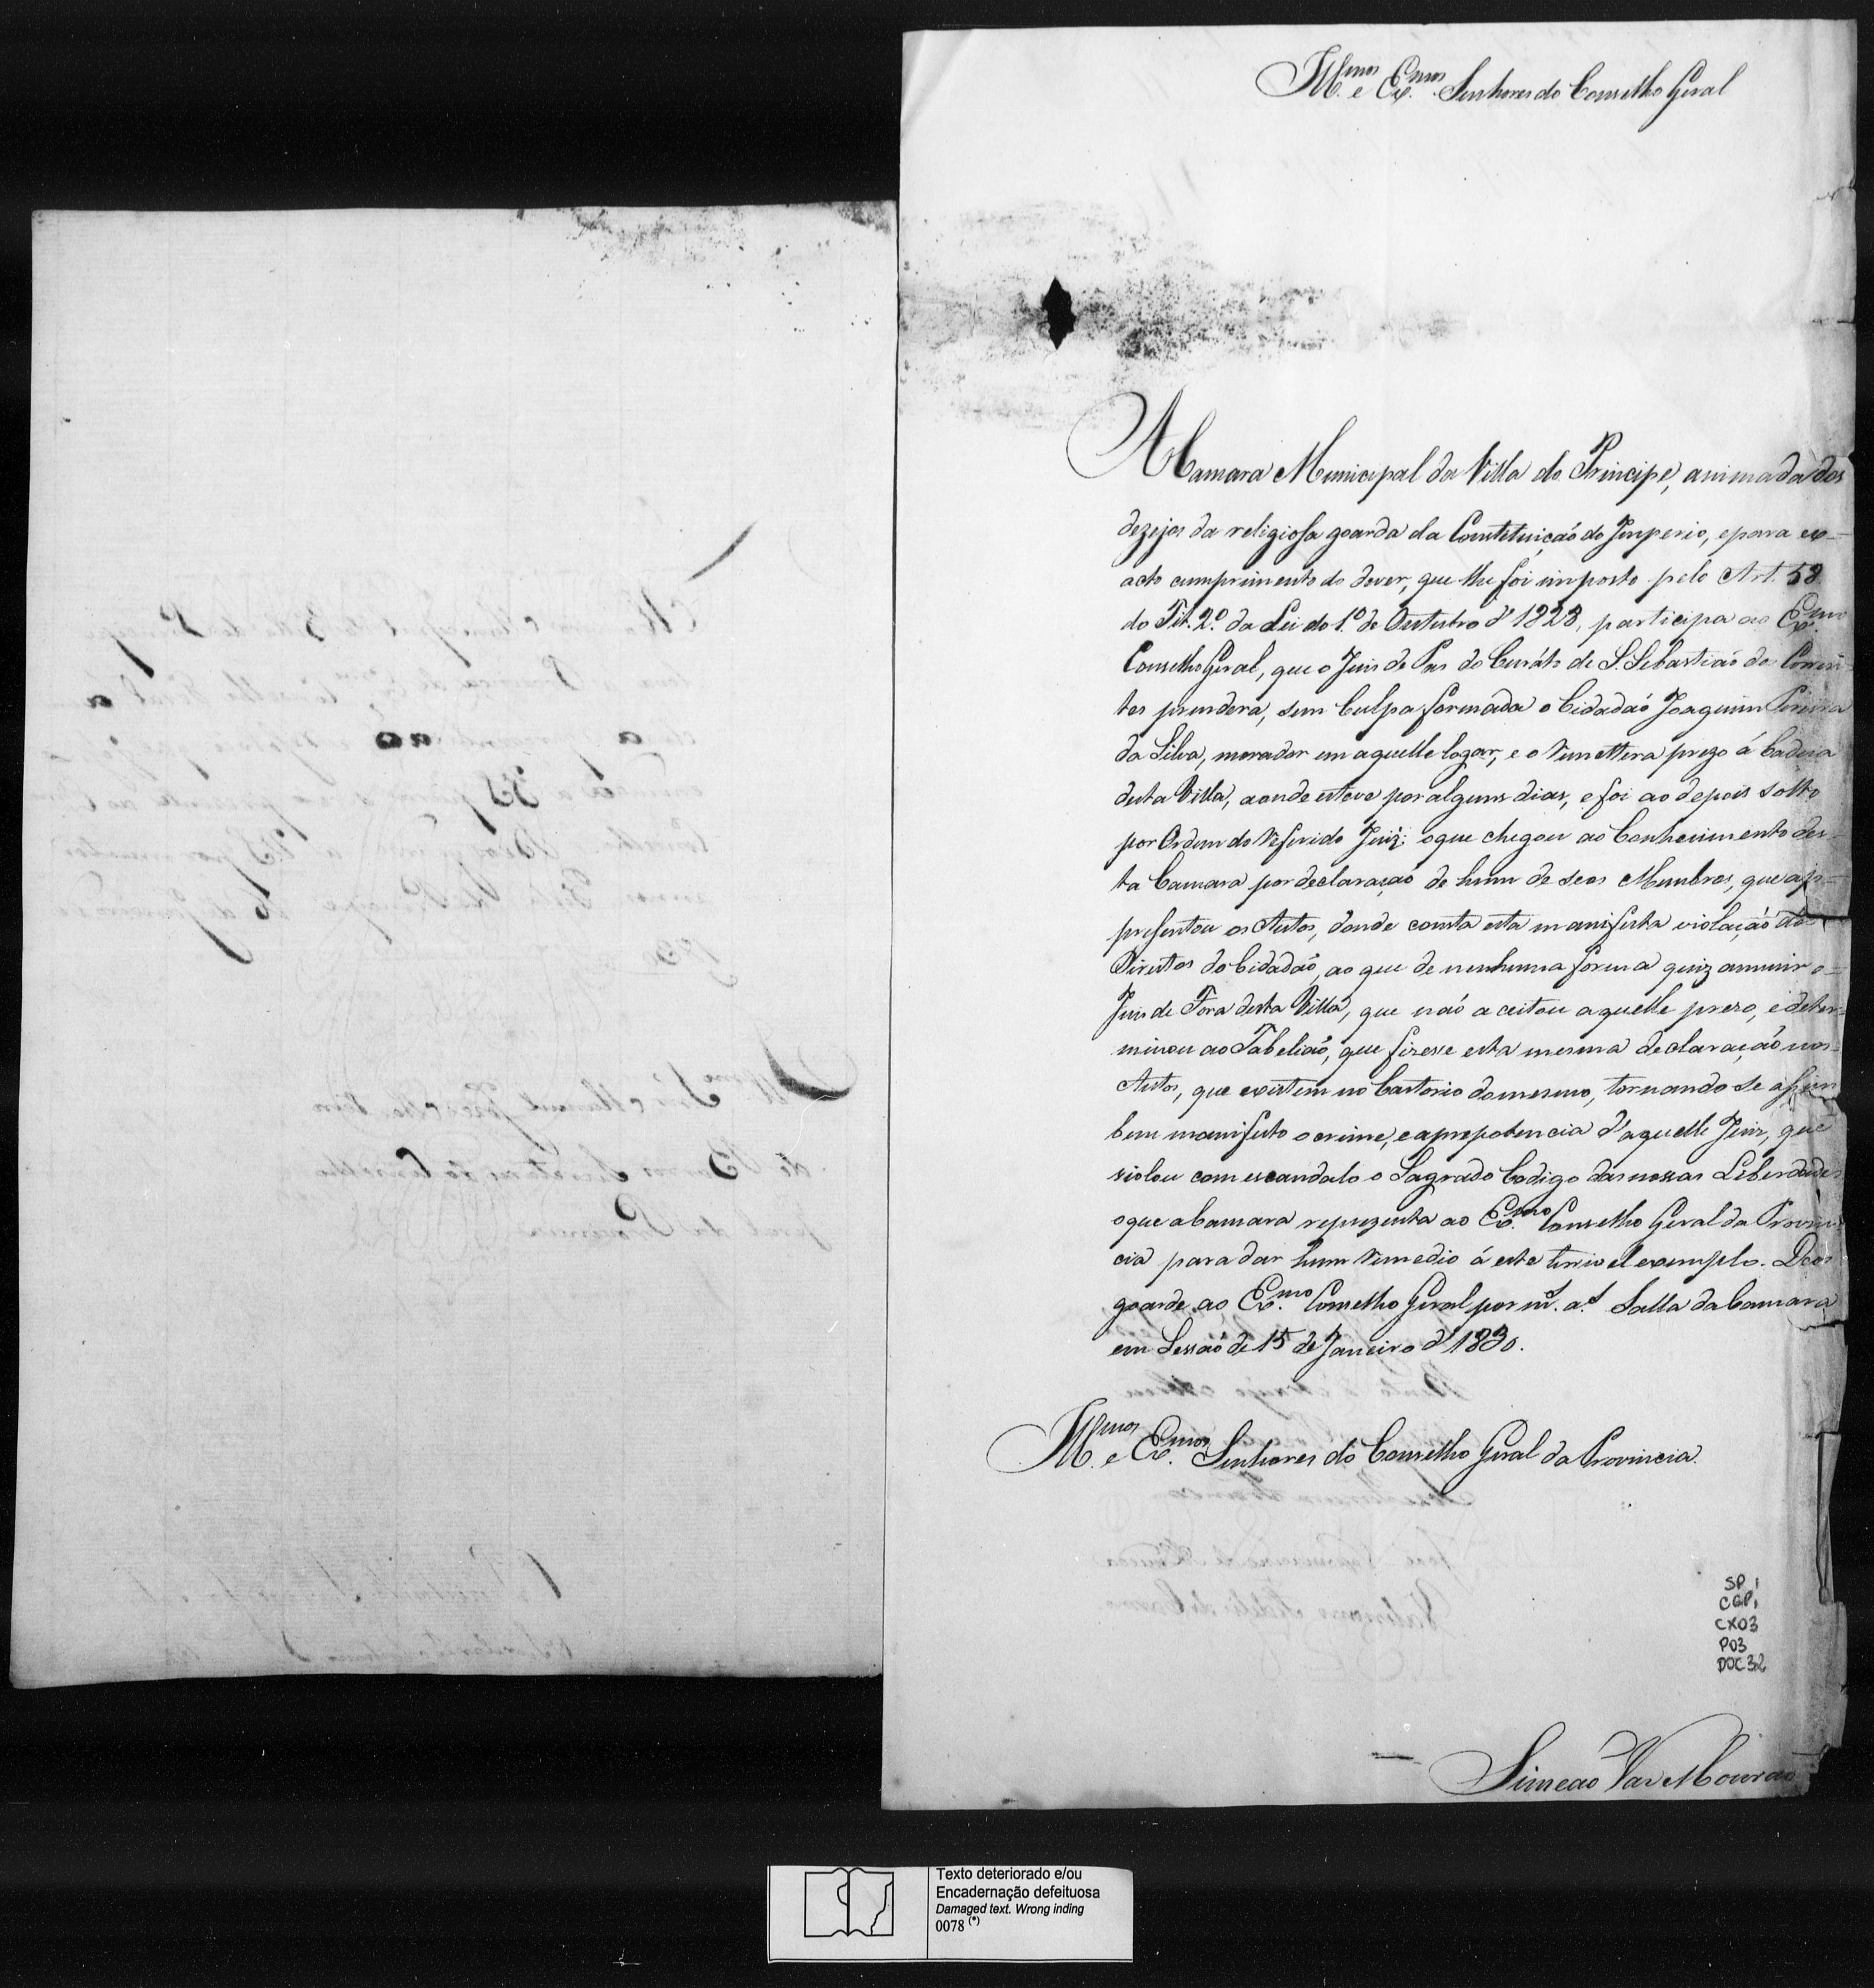 Ill.mos e Ex.mos Senhores do Conselho Geral
A Camara Municipal da Villa do Principe, animada dos
dezejos da religiosa goarda da Constituição do Imperio, e para ex-
acto cumprimento do dever, que lhe foi imposto pelo Art. 58
do Tit. 2.º da Lei do 1.º de Outubro d'1828, participa ao Ex.mo
Conselho Geral, que o Juis de Pas do Curáto de S. Sebastião dos Corren-
tes prendera, sem Culpa formada o Cidadão Joaquim Pereira
da Silva, morador em aquelle logar, e o remettera prezo á Cadeia
desta Villa, aonde esteve por alguns dias, e foi ao depois solto
por Ordem do referido Juiz; o que chegou ao Conhecimento des-
ta Camara por declaração de hum de seos Membros, que a-
presentou os Autos, donde consta esta manifesta violação dos
Direitos do Cidadão, ao que de nenhuma forma quiz annuir o-
Juis de Fora desta Villa, que não aceitou aquelle prezo, e deter-
minou ao Tabelião, que fizesse esta mesma declaração nos-
Autos, que existem no Cartorio do mesmo, tornando se assim
bem manifesto o crime, e a prepotencia d'aquelle Juiz, que
violou com escandalo o Sagrado Codigo das nossas Liberdades
o que a Camara reprezenta ao Ex.mo Conselho Geral da Provin-
cia para dar hum remedio á este terrivel exemplo. Deos
goarde ao Ex.mo Conselho Geral por m.s a.s Salla da Camara
em Sessão de 15 de Janeiro d'1830.
Ill.mos e Ex.mos Senhores do Conselho Geral da Provincia.
SP 1
CGP1
CX03
P03
DOC32
Simeão Vas Mourão
Texto deteriorado e/ou
Encadernação defeituosa
Damaged text. Wrong inding
0078 (*)